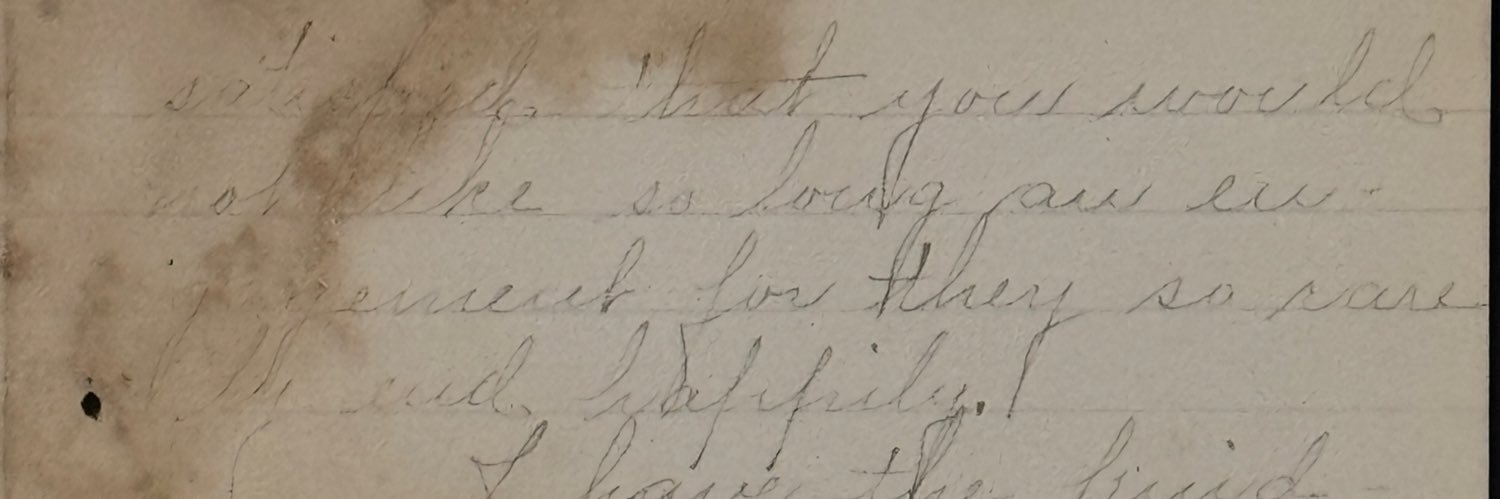 satisfied that you would
not like so long an en-
gagement for they so rare
ly end happily.
I have the kind-